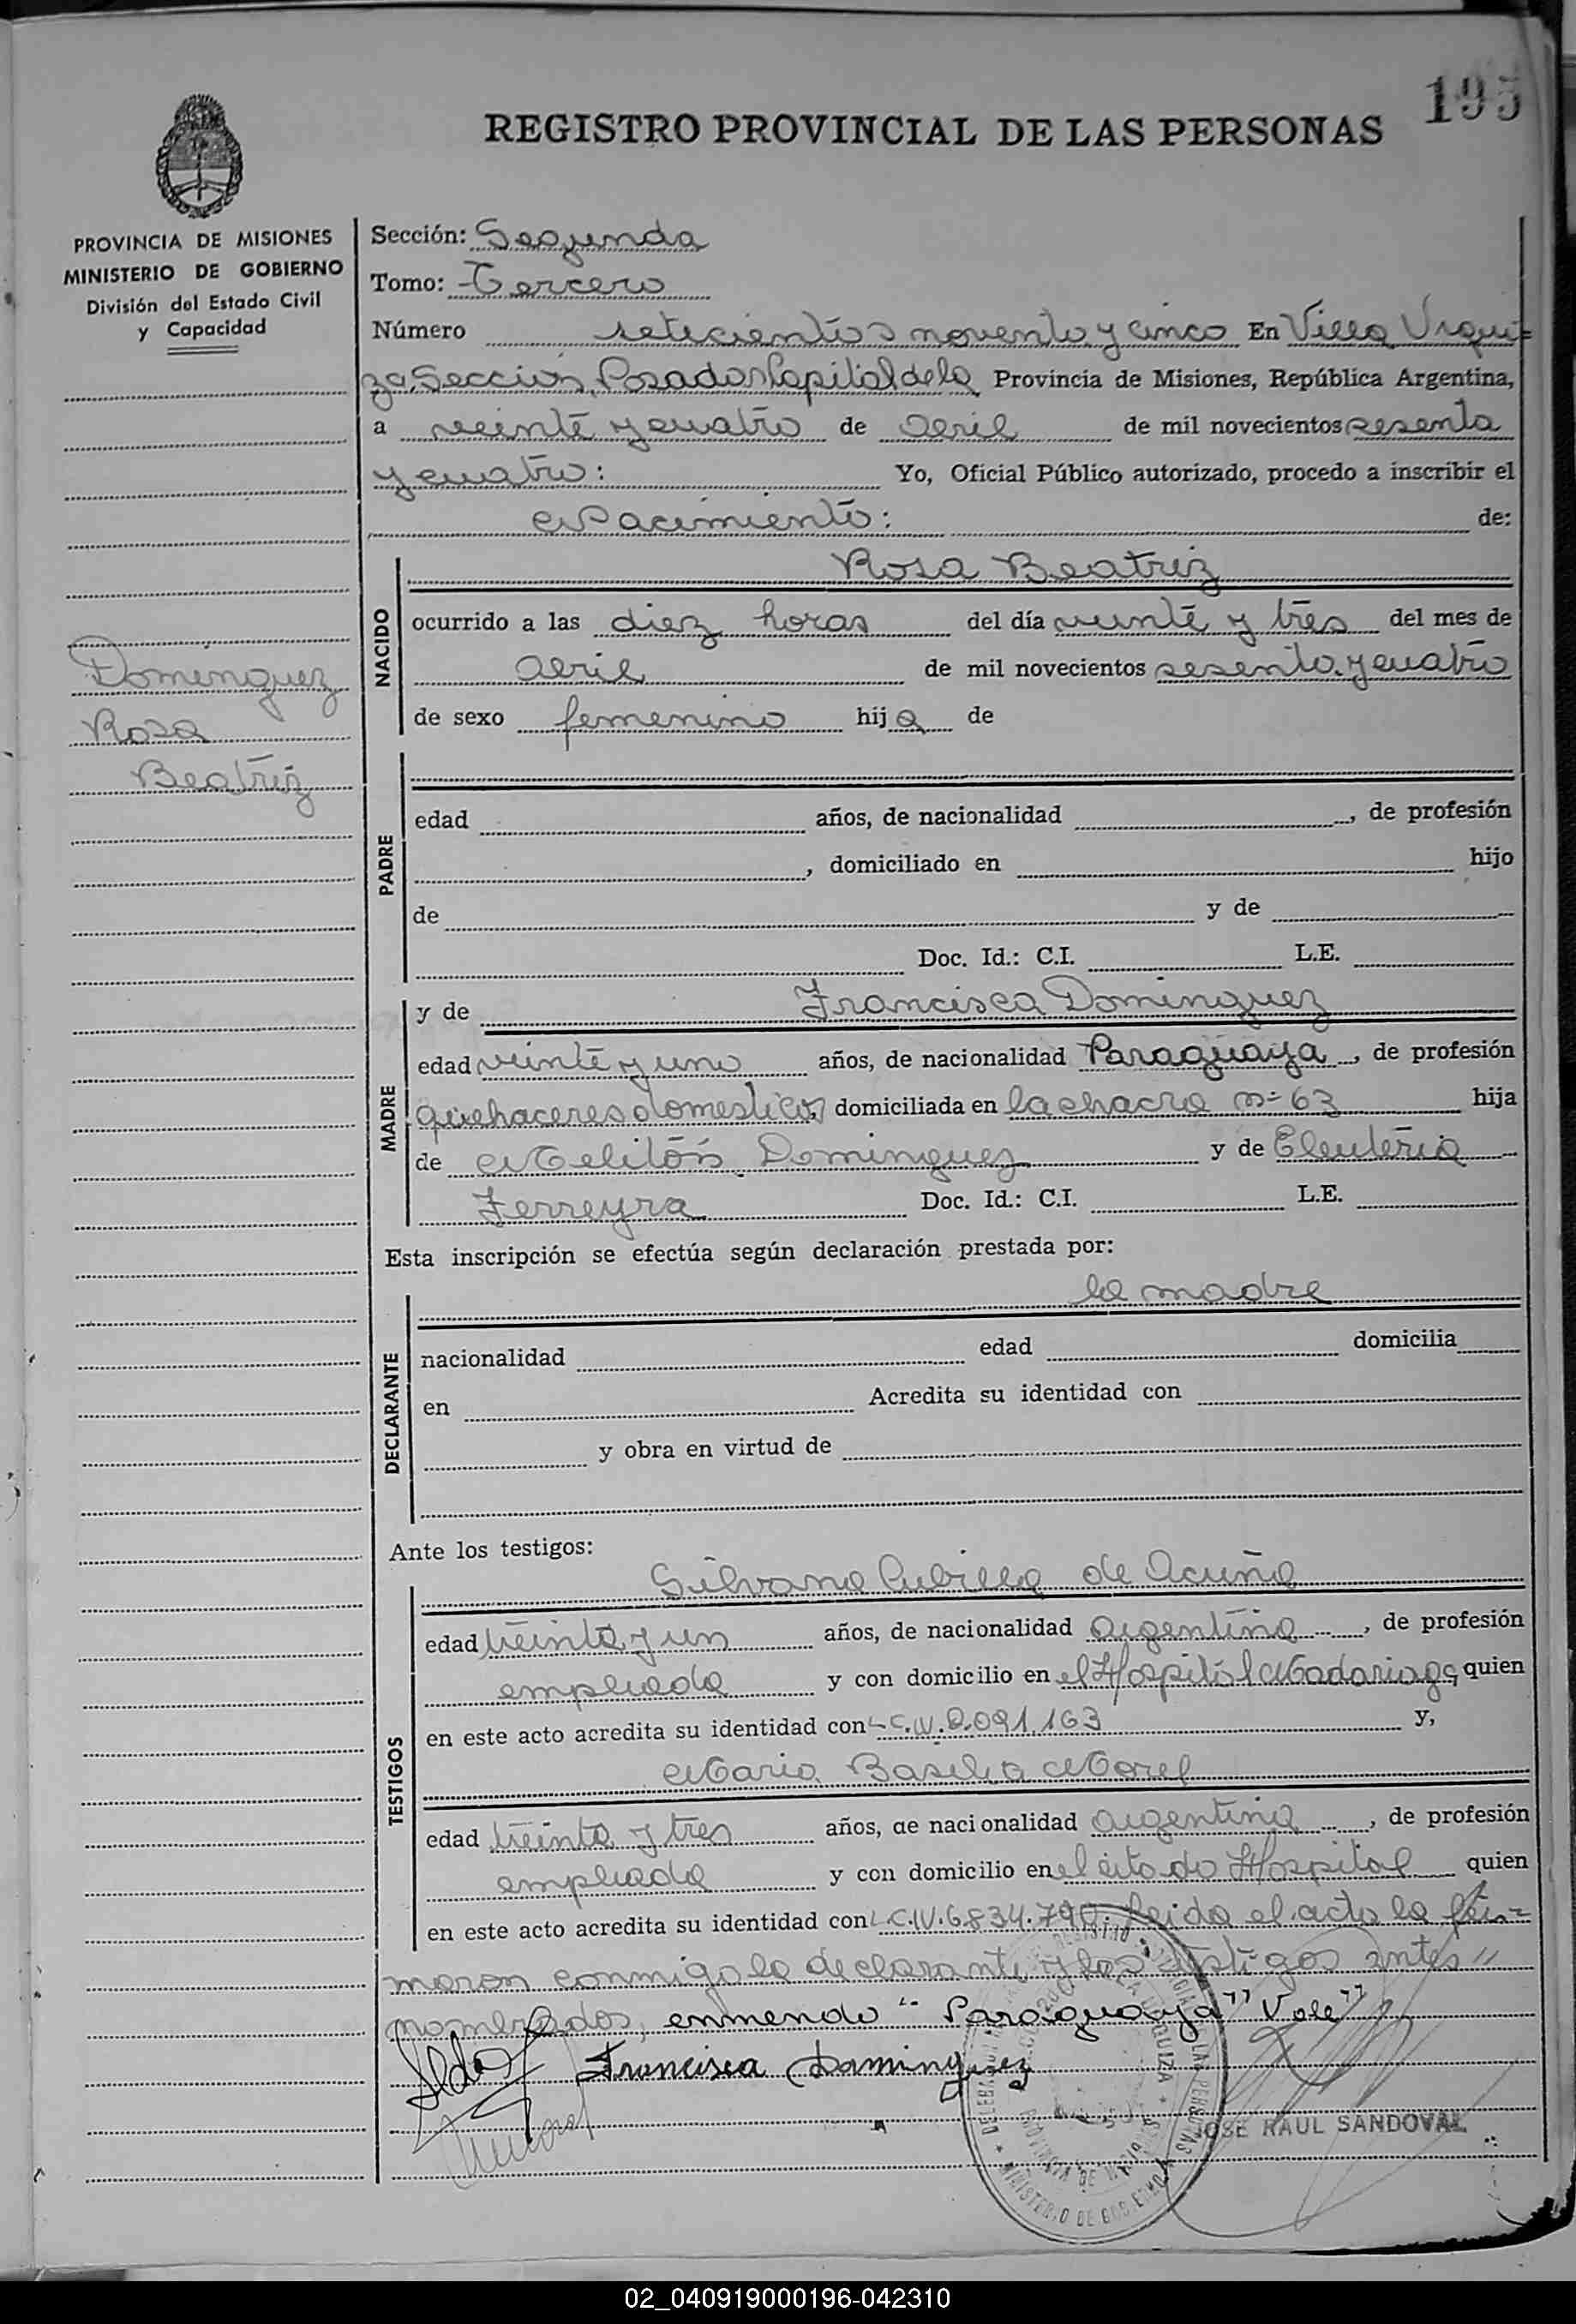 195
REGISTRO PROVINCIAL DE LAS PERSONAS
PROVINCIA DE MISIONES
MINISTERIO DE GOBIERNO
División del Estado Civil
y Capacidad
Dominguez
Rosa
Beatriz
Sección: Segunda
Tomo: Tercero
Número setecientos noventa y cinco En Villa Urqui=
za Sección, Posadas Capital de la Provincia de Misiones, República Argentina,
a veinte y cuatro de abril de mil novecientos sesenta
y cuatro: Yo, Oficial Público autorizado, procedo a inscribir el
Nacimiento: de:
NACIDO
Rosa Beatriz
ocurrido a las diez horas del día veinte y tres del mes de
abril de mil novecientos sesenta y cuatro
de sexo femenino hija de
PADRE
edad años, de nacionalidad , de profesión
, domiciliado en hijo
de y de
Doc. Id.: C.I. L.E.
MADRE
y de Francisca Dominguez
edad veinte y uno años, de nacionalidad Paraguaya, de profesión
quehaceres domesticos, domiciliada en la chacra nº 63 hija
de Melitón Dominguez y de Eleuteria
Ferreyra Doc. Id.: C.I. L.E.
Esta inscripción se efectúa según declaración prestada por:
DECLARANTE
la madre
nacionalidad edad domicilia
en Acredita su identidad con
y obra en virtud de
Ante los testigos:
TESTIGOS
Silvana Cubilla de Acuña
edad treinta y un años, de nacionalidad argentina, de profesión
empleada y con domicilio en el Hospital Madariaga, quien
en este acto acredita su identidad con L.C.N. 2.091.163 y,
Maria Basilia Morel
edad treinta y tres años, de nacionalidad argentina, de profesión
empleada y con domicilio en el citado Hospital quien
en este acto acredita su identidad con L.C.N. 6.834.790. Leida el acta la fir=
maron conmigo la declarante y los testigos antes "
nombrados, enmendo " Paraguaya" Vale"
Francisca Dominguez
JOSE RAUL SANDOVAL
02_040919000196-042310